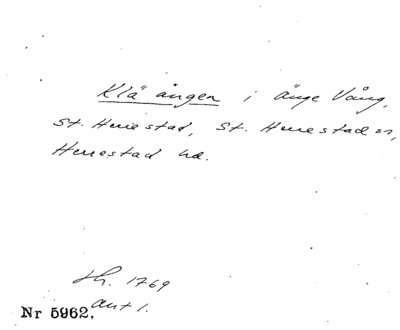 Klä ängen i Änge Vång,
St. Herrestad, St. Herrestad sn,
Herrestad hd.
1769
Akt 1.
Nr 5962.